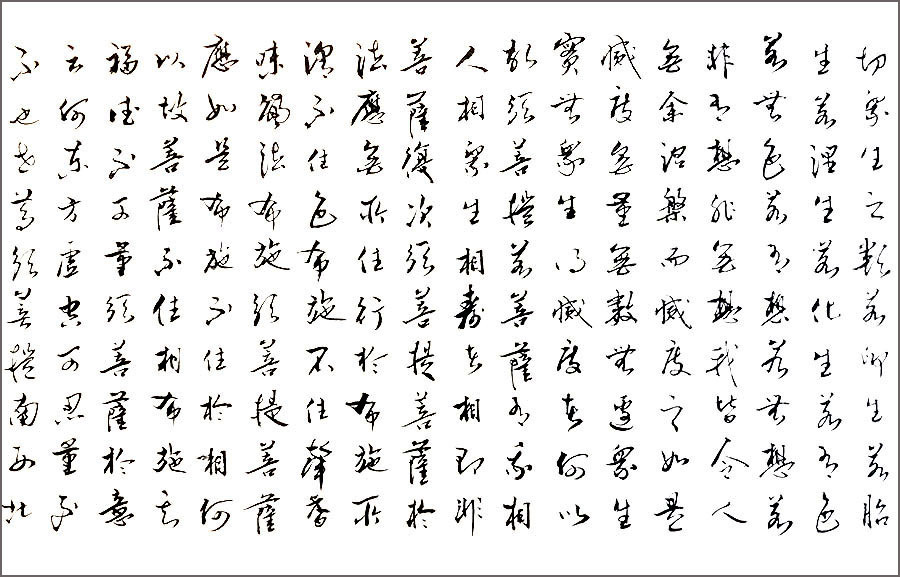 切眾生之類若卵生若胎
生若濕生若化生若有色
若無色若有想若無想若
非有想非無想我皆令人
無余涅槃而滅度之如是
滅度無量無數無邊眾生
實無眾生得滅度者何以
故須菩提若菩薩有我相
人相眾生相壽者相即非
菩薩復次須菩提菩薩於
法應無所住行於布施所
謂不住色布施不住聲香
味觸法布施須菩提菩薩
應如是布施不住於相何
以故菩薩不住相布施其
福德不可量須菩薩於意
云何東方虛空可思量不
不也世尊須菩提南西北